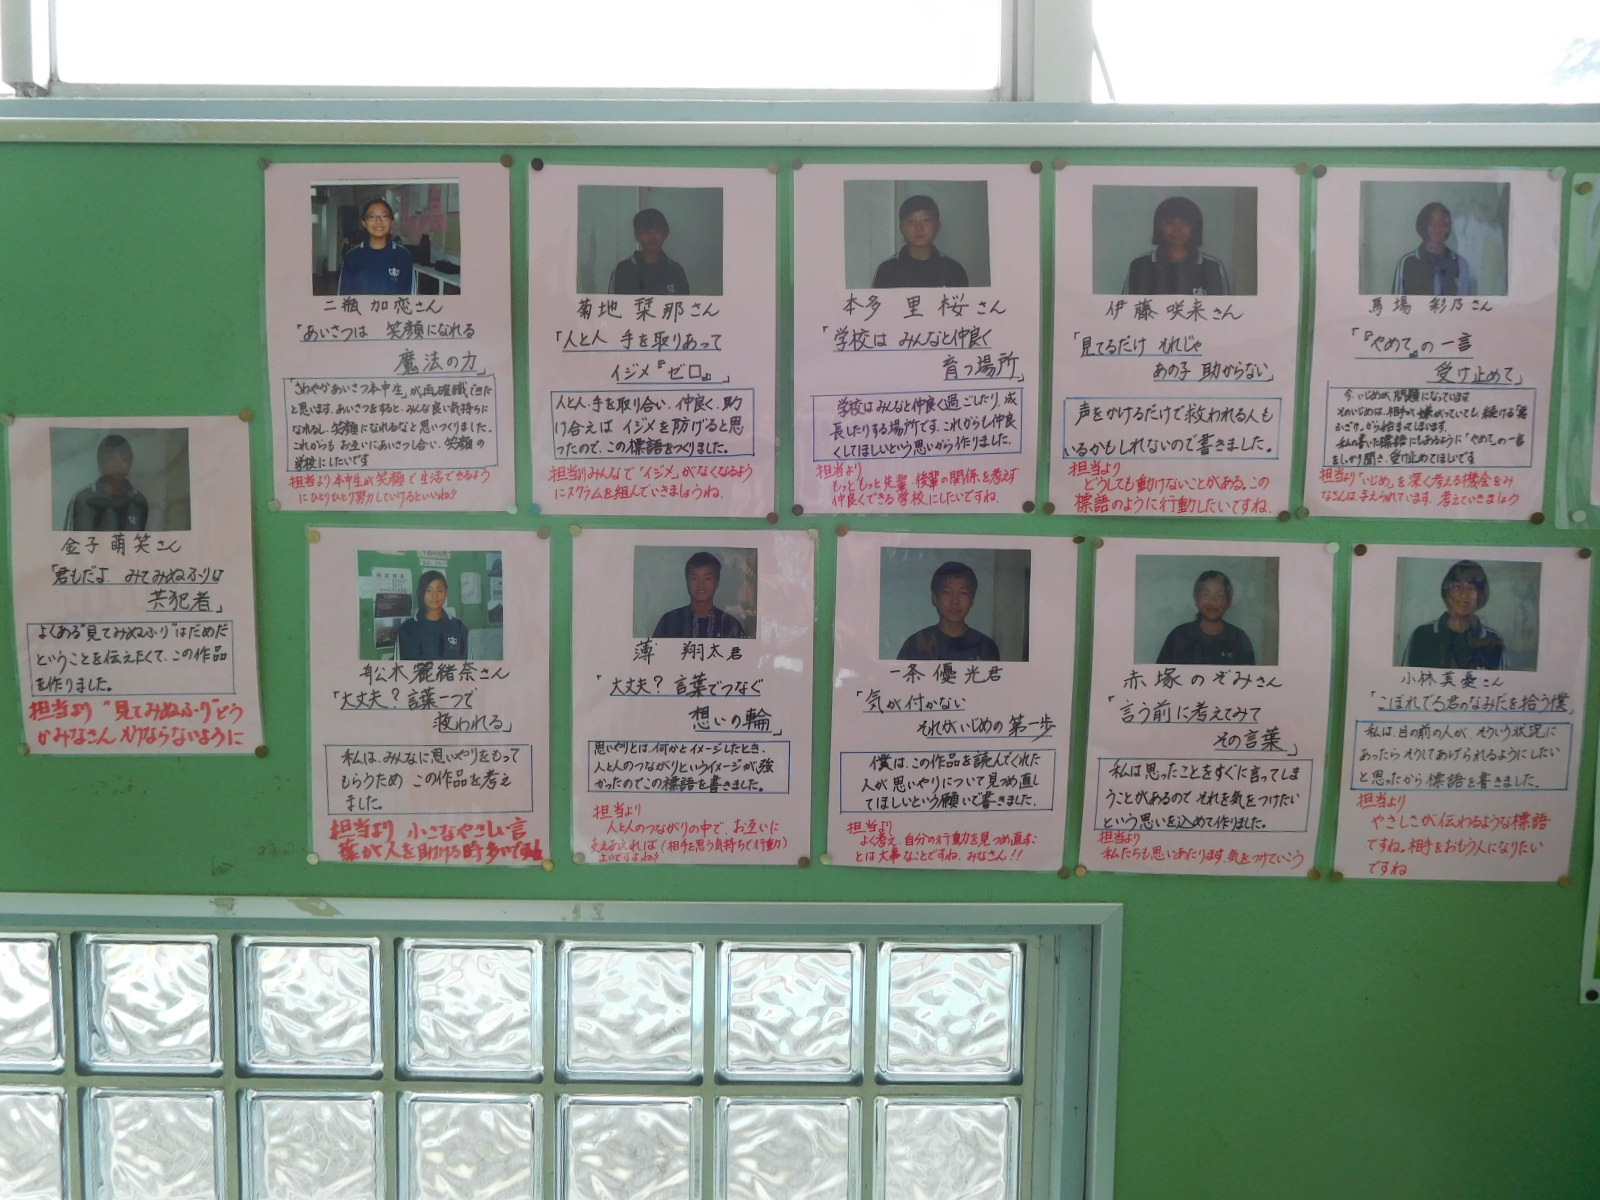 二瓶 加恋さん
「あいさつは 笑顔になれる
魔法の力」
「さわやかあいさつ本中生」が再確認できた
と思います。あいさつをすると、みんな良い気持ちに
なれるし、笑顔になれるなと思いつくりました。
これからも お互いにあいさつし合い、笑顔の
学校にしたいです
担当より 本中生が笑顔で生活できるよう
にひとりひとり努力していけるといいね!!
菊地 栞那さん
「人と人 手を取りあって
イジメ『ゼロ』」
人と人、手を取り合い、仲良く、助
け合えば イジメを防げると思
ったので、この標語をつくりました。
担当より みんなで「イジメ」がなくなるよう
にスクラムを組んでいきましょうね。
本多 里桜さん
「学校は みんなと仲良く
育つ場所」
学校はみんなと仲良く過ごしたり、成
長したりする場所です。これからも仲良
くしてほしいという思いから作りました。
担当より
もっともっと先輩、後輩の関係を考えず
仲良くできる学校にしたいですね。
伊藤 咲来さん
「見てるだけ それじゃ
あの子 助からない」
声をかけるだけで救われる人も
いるかもしれないので書きました。
担当より
どうしても動けないことがある。この
標語のように行動したいですね。
馬場 彩乃さん
「『やめて』の一言
受け止めて」
今、いじめが問題になっています
そのいじめは、相手が嫌がっていても、続ける「悪
ふざけ」から始まってしまいます。
私の書いた標語にもあるように「やめて」の一言
をしっかり聞き、受け止めてほしいです
担当より "いじめ"を深く考える機会をみ
なさんは与えられています。考えていきましょう
金子 萌笑さん
「君もだよ みてみぬふりは
共犯者」
よくある"見てみぬふり"はだめだ
ということを伝えたくて、この作品
を作りました。
担当より "見てみぬふり"どう
かみなさん そうならないように
舩木 麗緒奈さん
「大丈夫? 言葉一つで
救われる」
私は、みんなに思いやりをもって
もらうため この作品を考え
ました。
担当より 小さなやさしい言
葉が人を助ける時多いですね
薄 翔太君
「大丈夫? 言葉でつなぐ
想いの輪」
思いやりとは、何かとイメージしたとき、
人と人のつながりというイメージが強
かったのでこの標語を書きました。
担当より
人と人のつながりの中で、お互いに
支えあえれば(相手を思う気持ちで行動)
よいですよね
一条 優光君
「気が付かない
それがいじめの 第一歩
僕は、この作品を読んでくれた
人が思いやりについて見つめ直し
てほしいという願いで書きました。
担当より
よく考え、自分の行動を見つめ直すこ
とは大事なことですね、みなさん!!
赤塚 のぞみさん
「言う前に考えてみて
その言葉」
私は思ったことをすぐに言ってしま
うことがあるので それを気をつけたい
という思いを込めて作りました。
担当より
私たちも思いあたります、気をつけていこう
小林 真憂さん
「こぼれでる君のなみだを拾う僕」
私は、目の前の人が、そういう状況に
あったら そうしてあげられるようにしたい
と思ったから標語を書きました。
担当より
やさしさが伝わるような標語
ですね。相手をおもう人になりたい
ですね